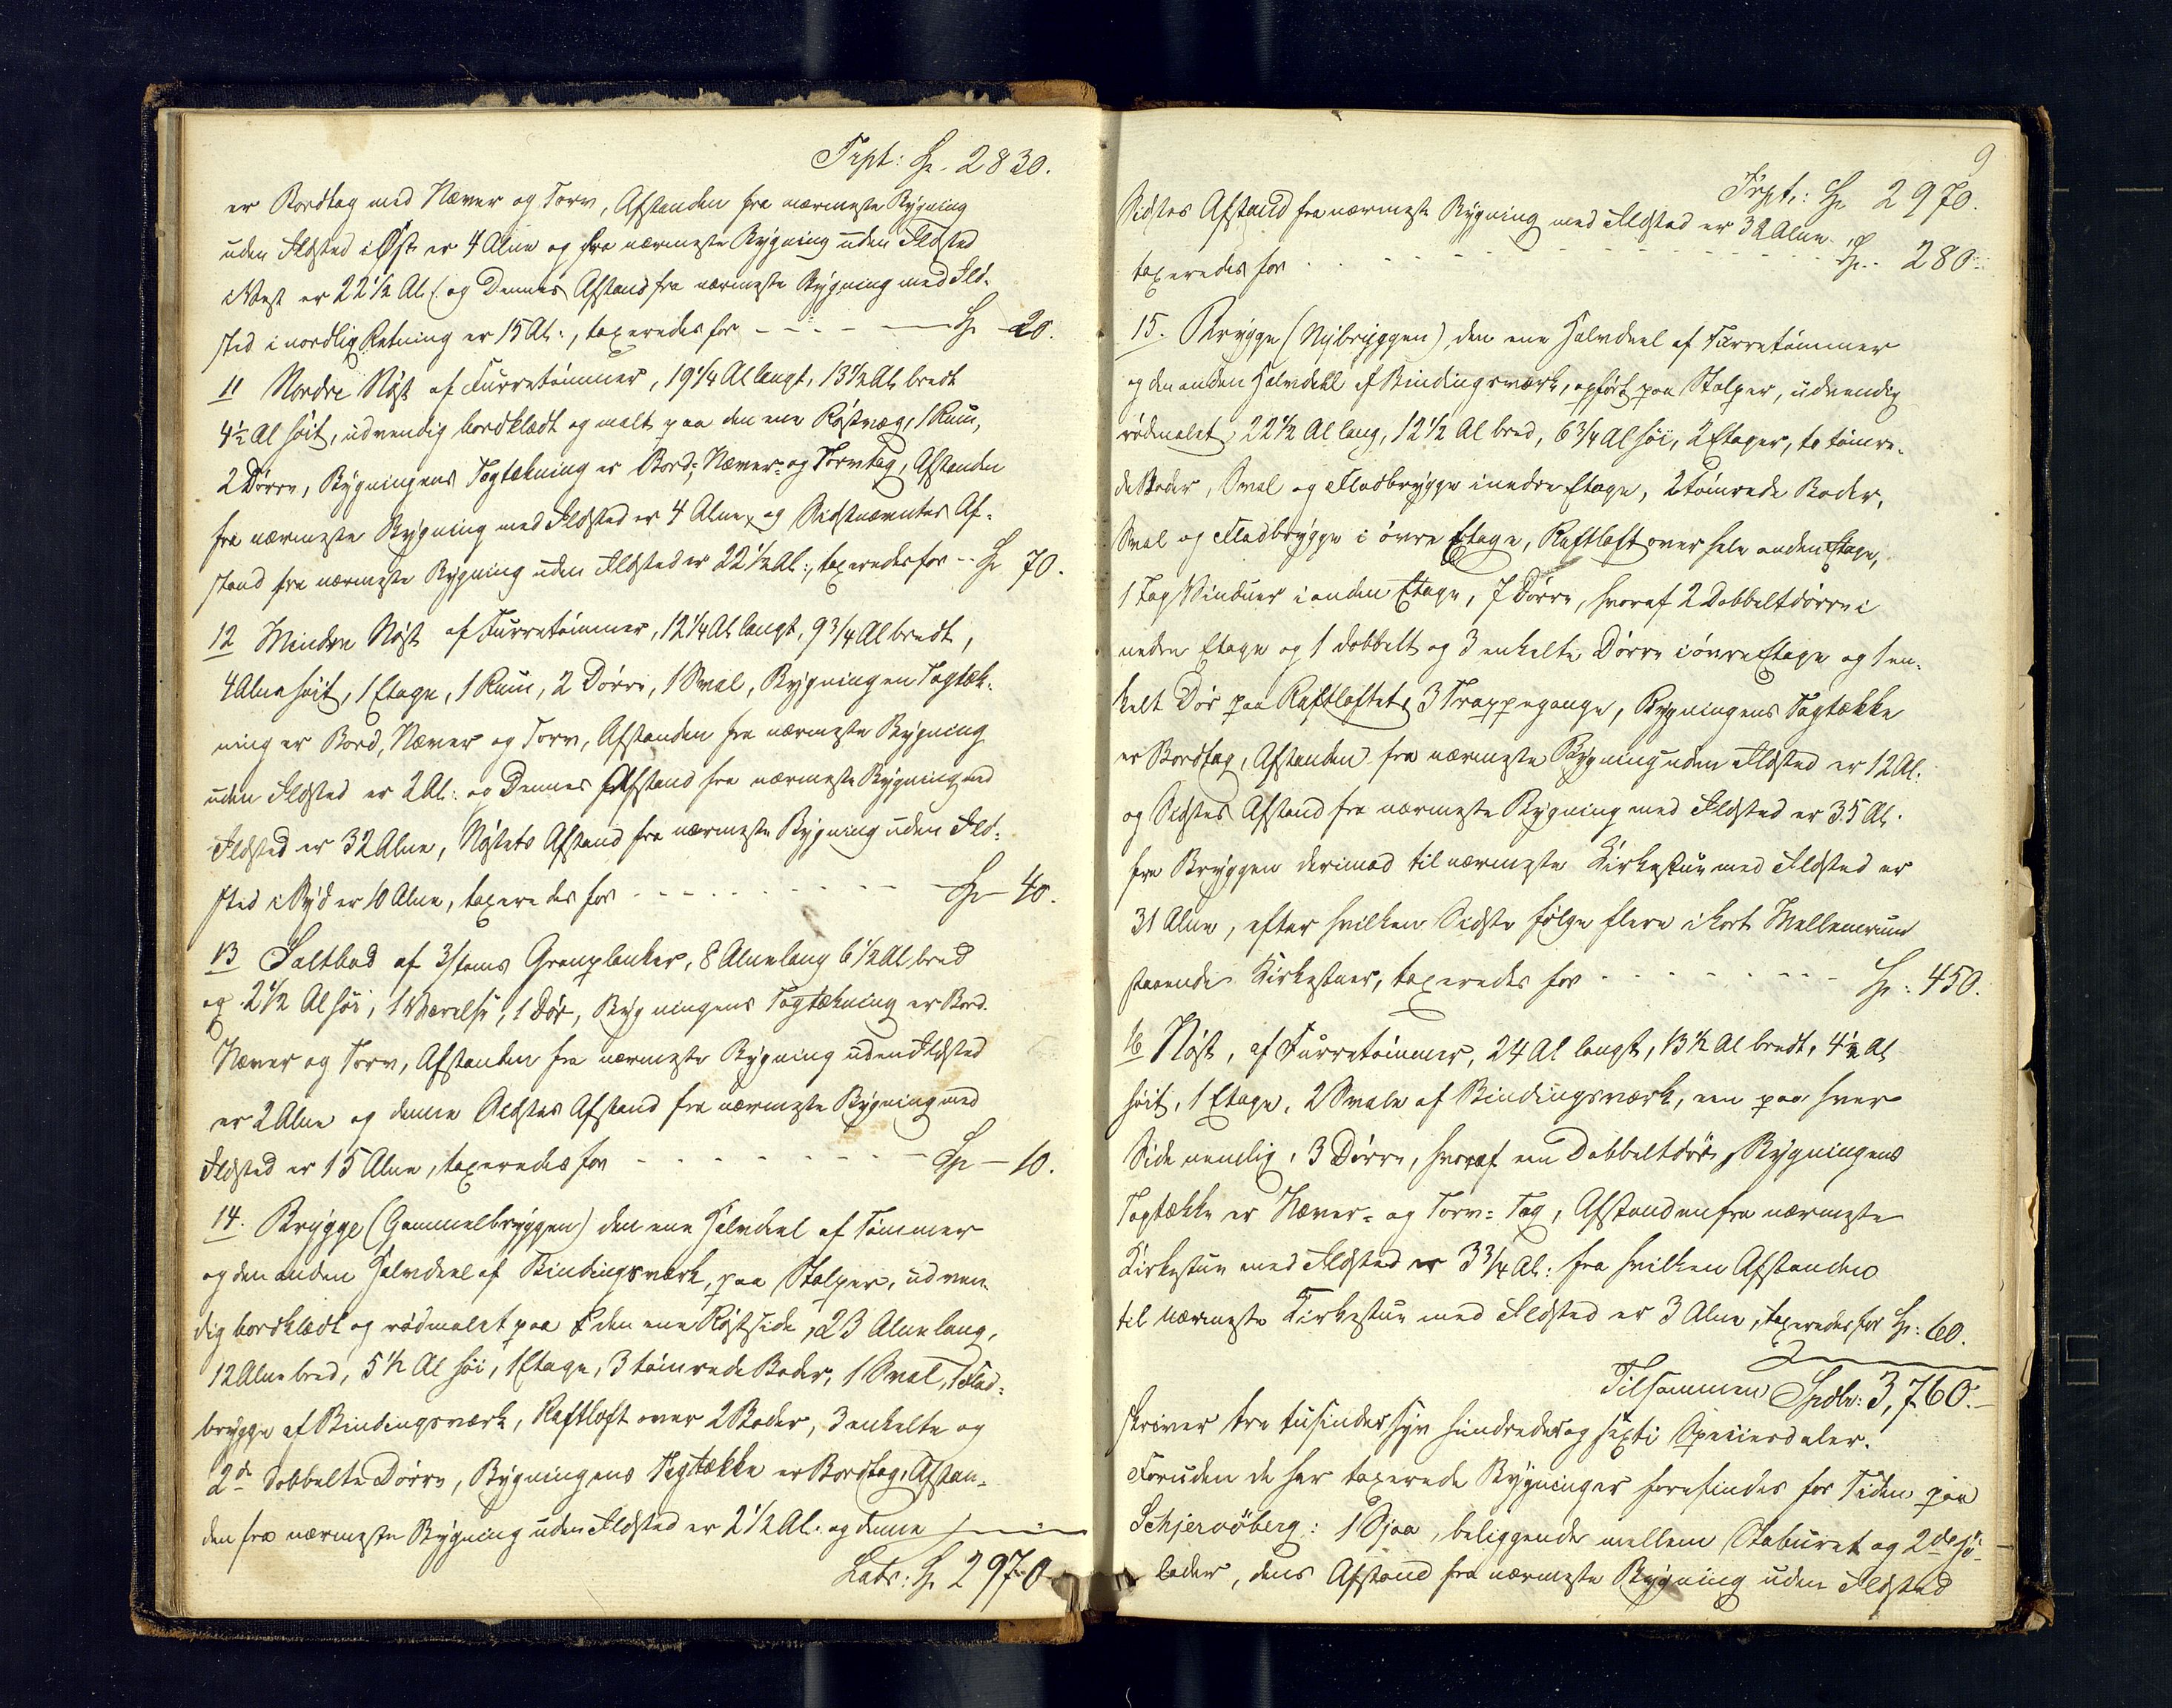 Trpt: Sp. 2830.
er Bordtag med Næver og Torv, Afstanden fra nærmeste Bygning
uden Ildsted i Øst er 4 Alne og fra nærmeste Bygning uden Ildsted
i Vest er 22 1/2 Al. (og Dennes Afstand fra nærmeste Bygning med Ild-
sted i nordlig Retning er 15 Al:, taxeredes for - - - - Sp - 20.
11 Nordre Nøst af Furretømmer, 19 1/4 Al langt, 13 1/2 Al. bredt
4 1/2 Al høit, udvendig bordklædt og malt paa den ene Røstvæg, 1 Rum,
2 Dørre, Bygningens Tagtækning er Bord-, Næver- og Torvtag, Afstanden
fra nærmeste Bygning med Ildsted er 4 Alne, og Sidstnævntes Af-
stand fra nærmeste Bygning uden Ildsted er 22 1/2 Al:, taxeredes for - - Sp 70.
12 Mindre Nøst af Furretømmer, 12 1/4 Al langt, 9 3/4 Al bredt,
4 Alne høit, 1 Etage, 1 Rum, 2 Dørre, 1 Sval, Bygningen Tagtæk-
ning er Bord, Næver og Torv, Afstanden fra nærmeste Bygning
uden Ildsted er 2 Al: og Dennes Afstand fra nærmeste Bygning med
Ildsted er 32 Alne, Nøstets Afstand fra nærmeste Bygning uden Ild-
sted i Syd er 10 Alne, taxeredes for - - - - - - Sp - 40.
13 Saltbod af 3/toms Granplanker, 8 Alne lang 6 1/2 Al, bred
og 2 1/2 Al høi, 1 Værelse, 1 Dør, Bygningens Tagtækning er Bord.
Næver og Torv, Afstanden fra nærmeste Bygning uden Ildsted
er 2 Alne og denne Sidstes Afstand fra nærmeste Bygning med
Ildsted er 15 Alne, taxeredes for - - - - - - Sp - 10.
14. Brygge (Gammelbryggen) den ene Halvdeel af Tømmer
og den anden Halvdeel af Bindingsværk, paa Stolper, udven-
dig bordklædt og rødmalet paa den ene Røstside, 23 Alne lang,
12 Alne bred, 5 1/2 Al høi, 1 Etage, 3 tømrede Boder, 1 Sval, 1 Flad-
brygge af Bindingsværk, Raftloft over 2 Boder, 3 enkelte og
2de dobbelte Dørre, Bygningens Tagtække er Bordtag, Afstan-
den fra nærmeste Bygning uden Ildsted er 2 1/2 Al. og denne
Lats: Sp 2970
9
Trpt: Sp 2970.
Sidstes Afstand fra nærmeste Bygning med Ildsted er 32 Alne
taxeredes for - - - - - - - - Sp - 280.
15. Brygge (Nybryggen), den ene Halvdeel af Furretømmer
og den anden Halvdeel af Bindingsværk, opført paa Stolper, udvendig
rødmalet, 22 1/2 Al lang, 12 1/2 Al bred, 6 3/4 Al høi, 2 Etager, to tømre-
de Boder, Sval og Fladbrygge i nedre Etage, 2 tømrede Boder,
Sval og Fladbrygge i øvre Etage, Raftloft over hele anden Etage,
1 Fag Vinduer i anden Etage, 7 Dørre, hvoraf 2 Dobbeltdørre i
nedre Etage og 1 dobbelt og 3 enkelte Dørre i øvre Etage og 1 en-
kelt Dør paa Raftloftet, 3 Trappegange, Bygningens Tagtække
er Bordtag, Afstanden fra nærmeste Bygning uden Ildsted er 12 Al.
og Sidstes Afstand fra nærmeste Bygning med Ildsted er 35 Al.
fra Bryggen derimod til nærmeste Kirkestue med Ildsted er
31 Alne, efter hvilken Sidste følge flere i kort Mellemrum
staaende Kirkestuer, taxeredes for - - - - - - Sp: 450.
16 Nøst, af Furretømmer, 24 Al langt, 13 1/2 Al bredt, 4 1/2 Al
høit, 1 Etage, 2 Svale af Bindingsværk, een paa hver
Side nemlig, 3 Dørre, hvoraf een Dobbeltdør, Bygningens
Tagtække er Næver- og Torv- Tag, Afstanden fra nærmeste
Kirkestue med Ildsted er 3 3/4 Al: fra hvilken Afstanden
til nærmeste Kirkestue med Ildsted er 3 Alne, taxeredes for Sp: 60.
Tilsammen Spdlr: 3,760.-
skriver tre tusinder syv hundreder og sexti Speciesdaler.
Foruden de her taxerede Bygninger forefindes for Tiden paa
Schjervöberg: 1 Sjaa, beliggende mellem Staburet og 2de Hø-
lader, dens Afstand fra nærmeste Bygning uden Ildsted